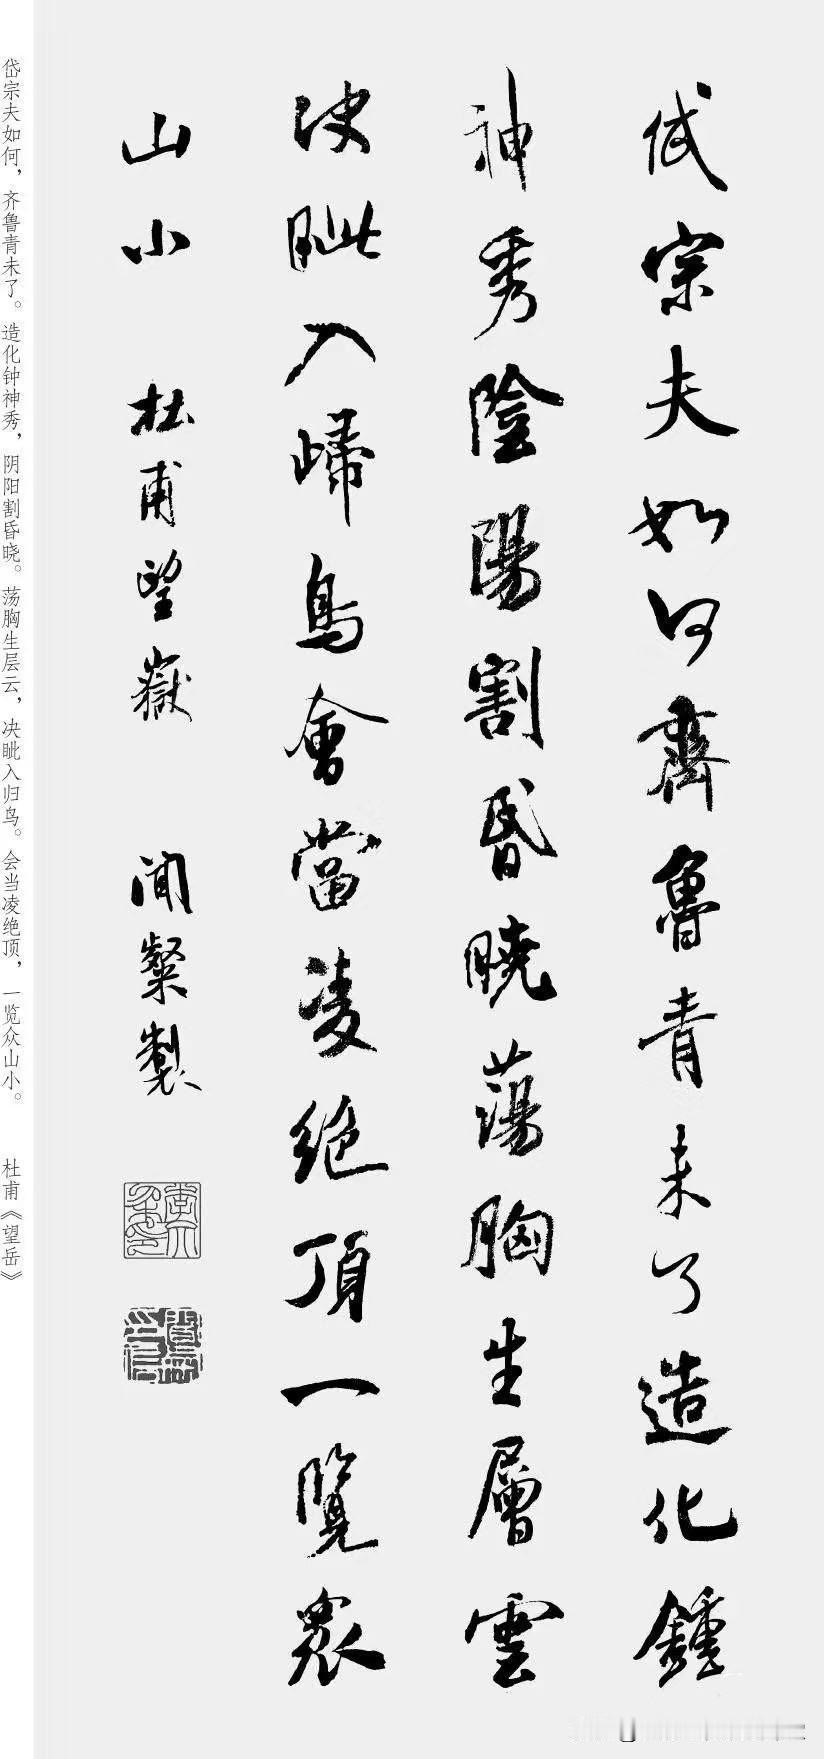 岱宗夫如何齊魯青未了造化鍾
神秀陰陽割昏曉蕩胸生層雲
決眥入歸鳥會當凌絕頂一覽衆
山小 杜甫望嶽 聞粲製
岱宗夫如何，齐鲁青未了。造化钟神秀，阴阳割昏晓。荡胸生层云，决眦入归鸟。会当凌绝顶，一览众山小。 杜甫《望岳》